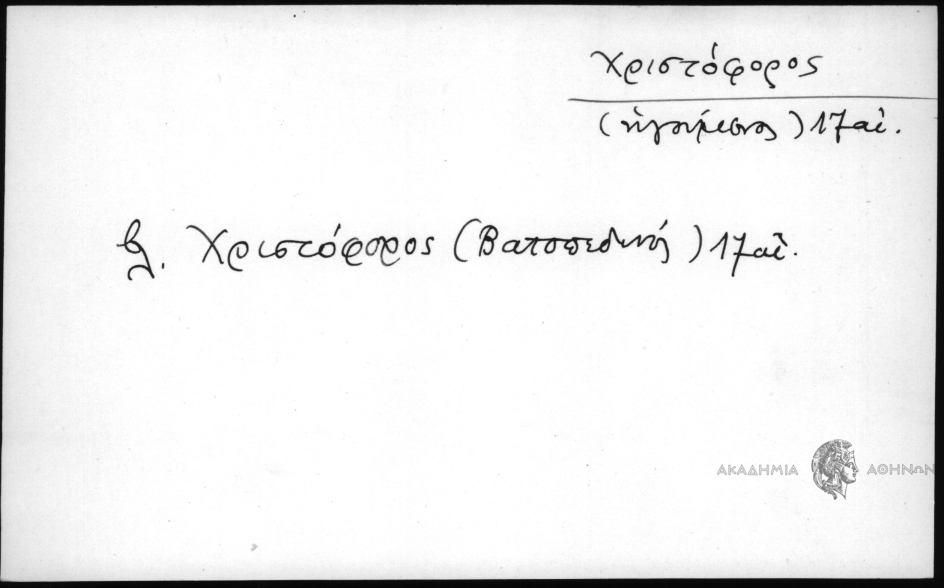 Χριστόφορος
(ἡγούμενος) 17 αἰ.
βλ. Χριστόφορος (Βατοπεδινός) 17 αἰ.
ΑΚΑΔΗΜΙΑ ΑΘΗΝΩΝ